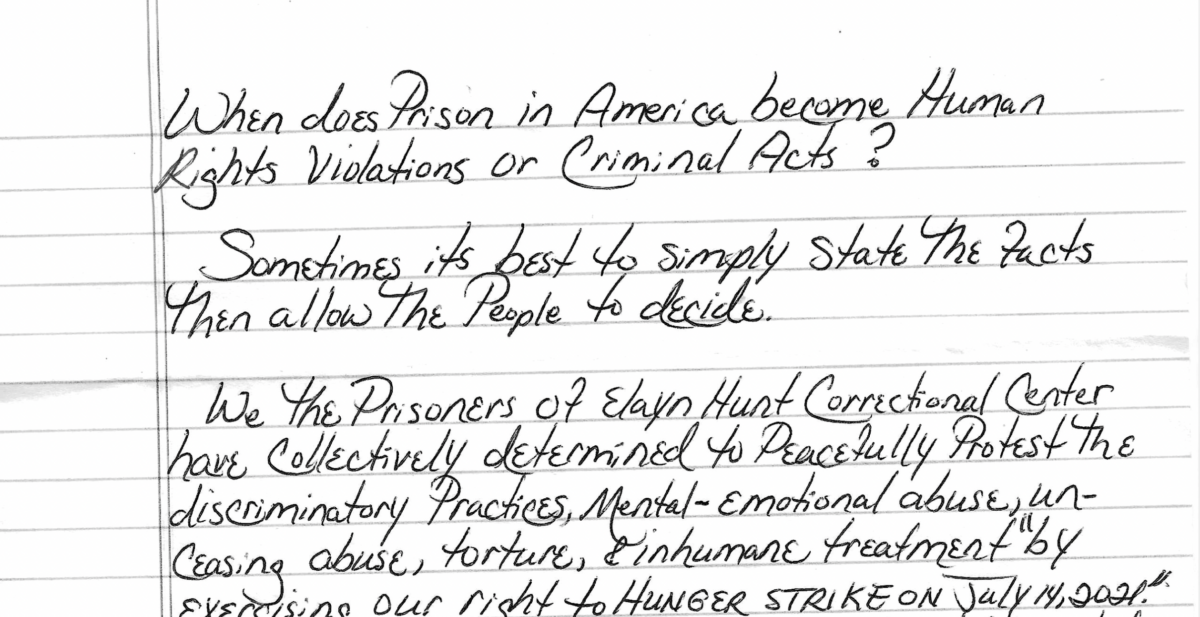 When does Prison in America become Human
Rights Violations or Criminal Acts?
Sometimes its best to simply state The Facts
Then allow The People to decide.
We The Prisoners of Elayn Hunt Correctional Center
have Collectively determined to Peacefully Protest The
discriminatory Practices, Mental-Emotional abuse, un-
ceasing abuse, torture, & inhumane treatment" by
exercising our right to HUNGER STRIKE ON July 14, 2021."